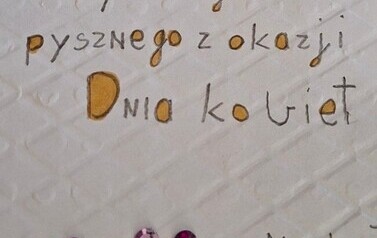 pysznego z okazji
Dnia kobiet